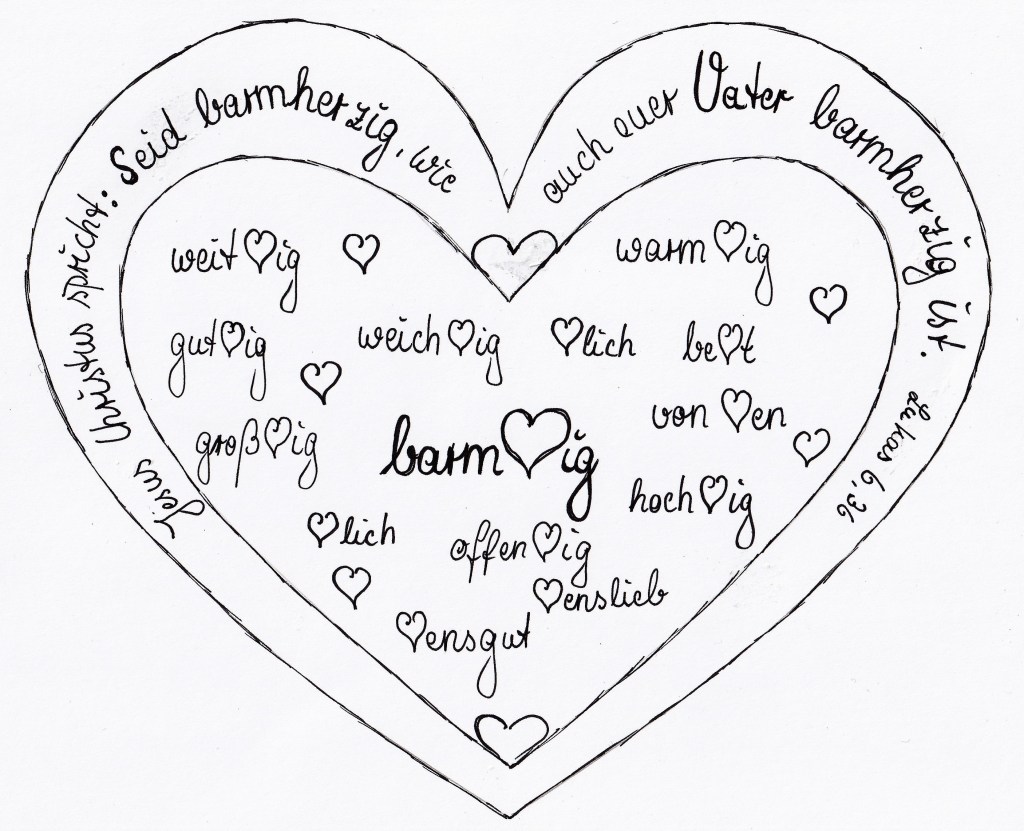 Jesus Christus spricht: Seid barmherzig, wie auch euer Vater barmherzig ist. Lukas 6,36
weit♡ig
warm♡ig
gut♡ig
weich♡ig
♡lich
be♡t
von ♡en
groß♡ig
barm♡ig
hoch♡ig
♡lich
offen♡ig
♡enslieb
♡ensgut